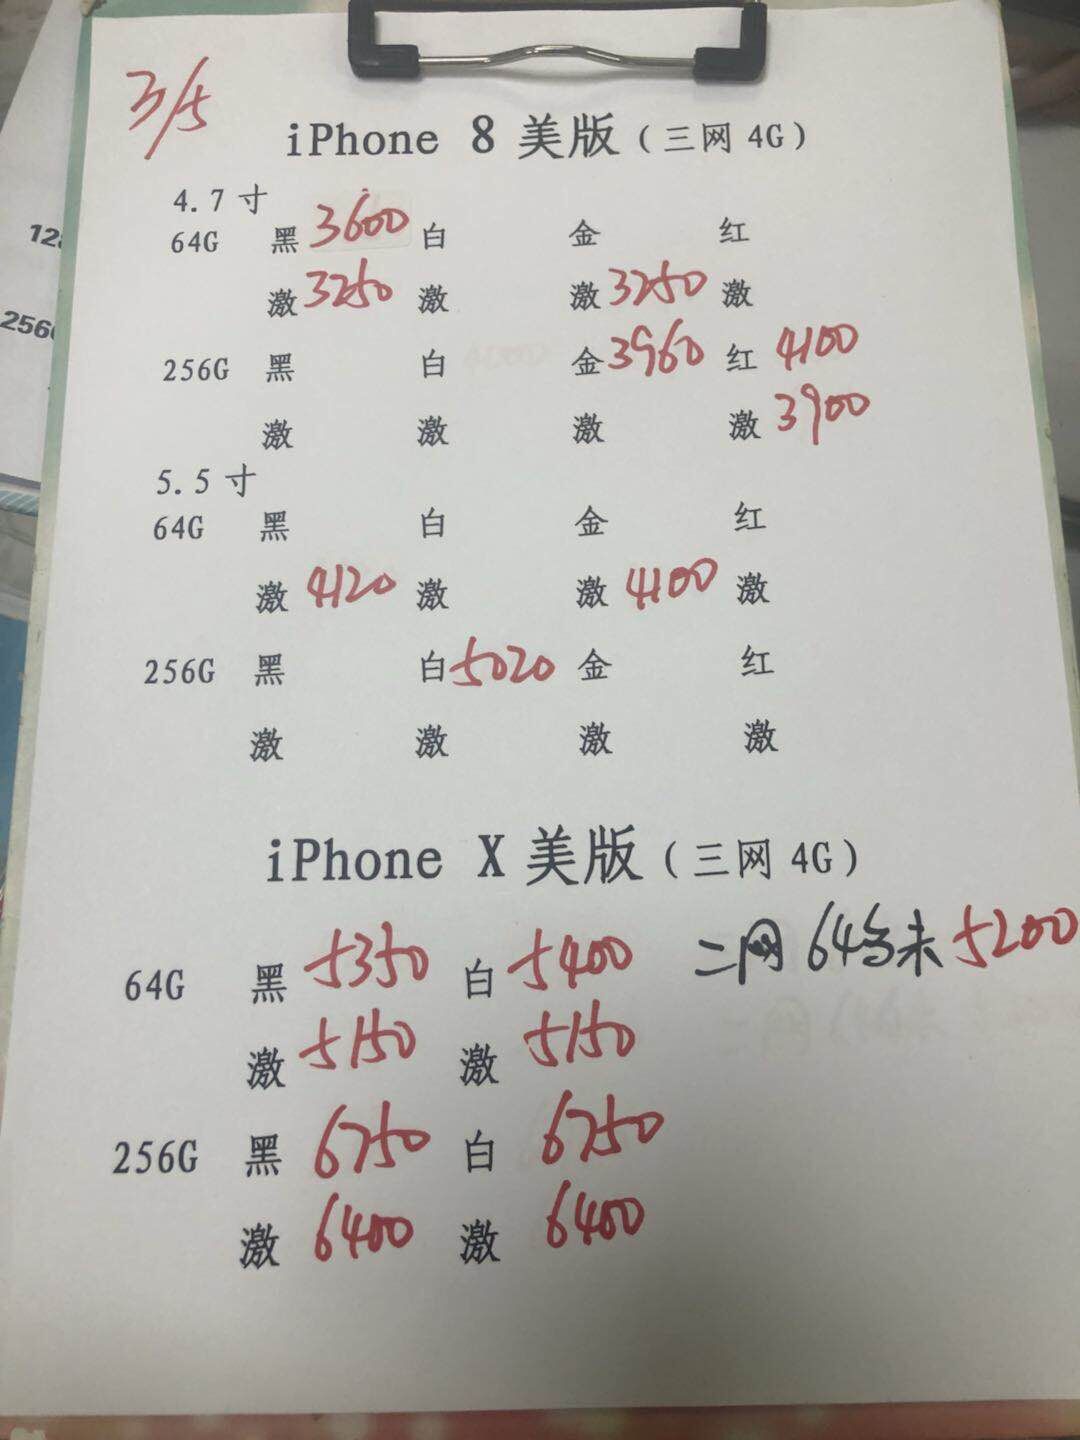 3/5
iPhone 8 美版（三网 4G）
4.7 寸
64G 黑 3600 白 金 红
激 3250 激 激 3250 激
256G 黑 白 金 3960 红 4100
激 激 激 激 3900
5.5 寸
64G 黑 白 金 红
激 4120 激 激 4100 激
256G 黑 白 5020 金 红
激 激 激 激
iPhone X 美版（三网 4G）
64G 黑 5350 白 5400 二网 64 未 5200
激 5150 激 5150
256G 黑 6750 白 6750
激 6400 激 6400
256